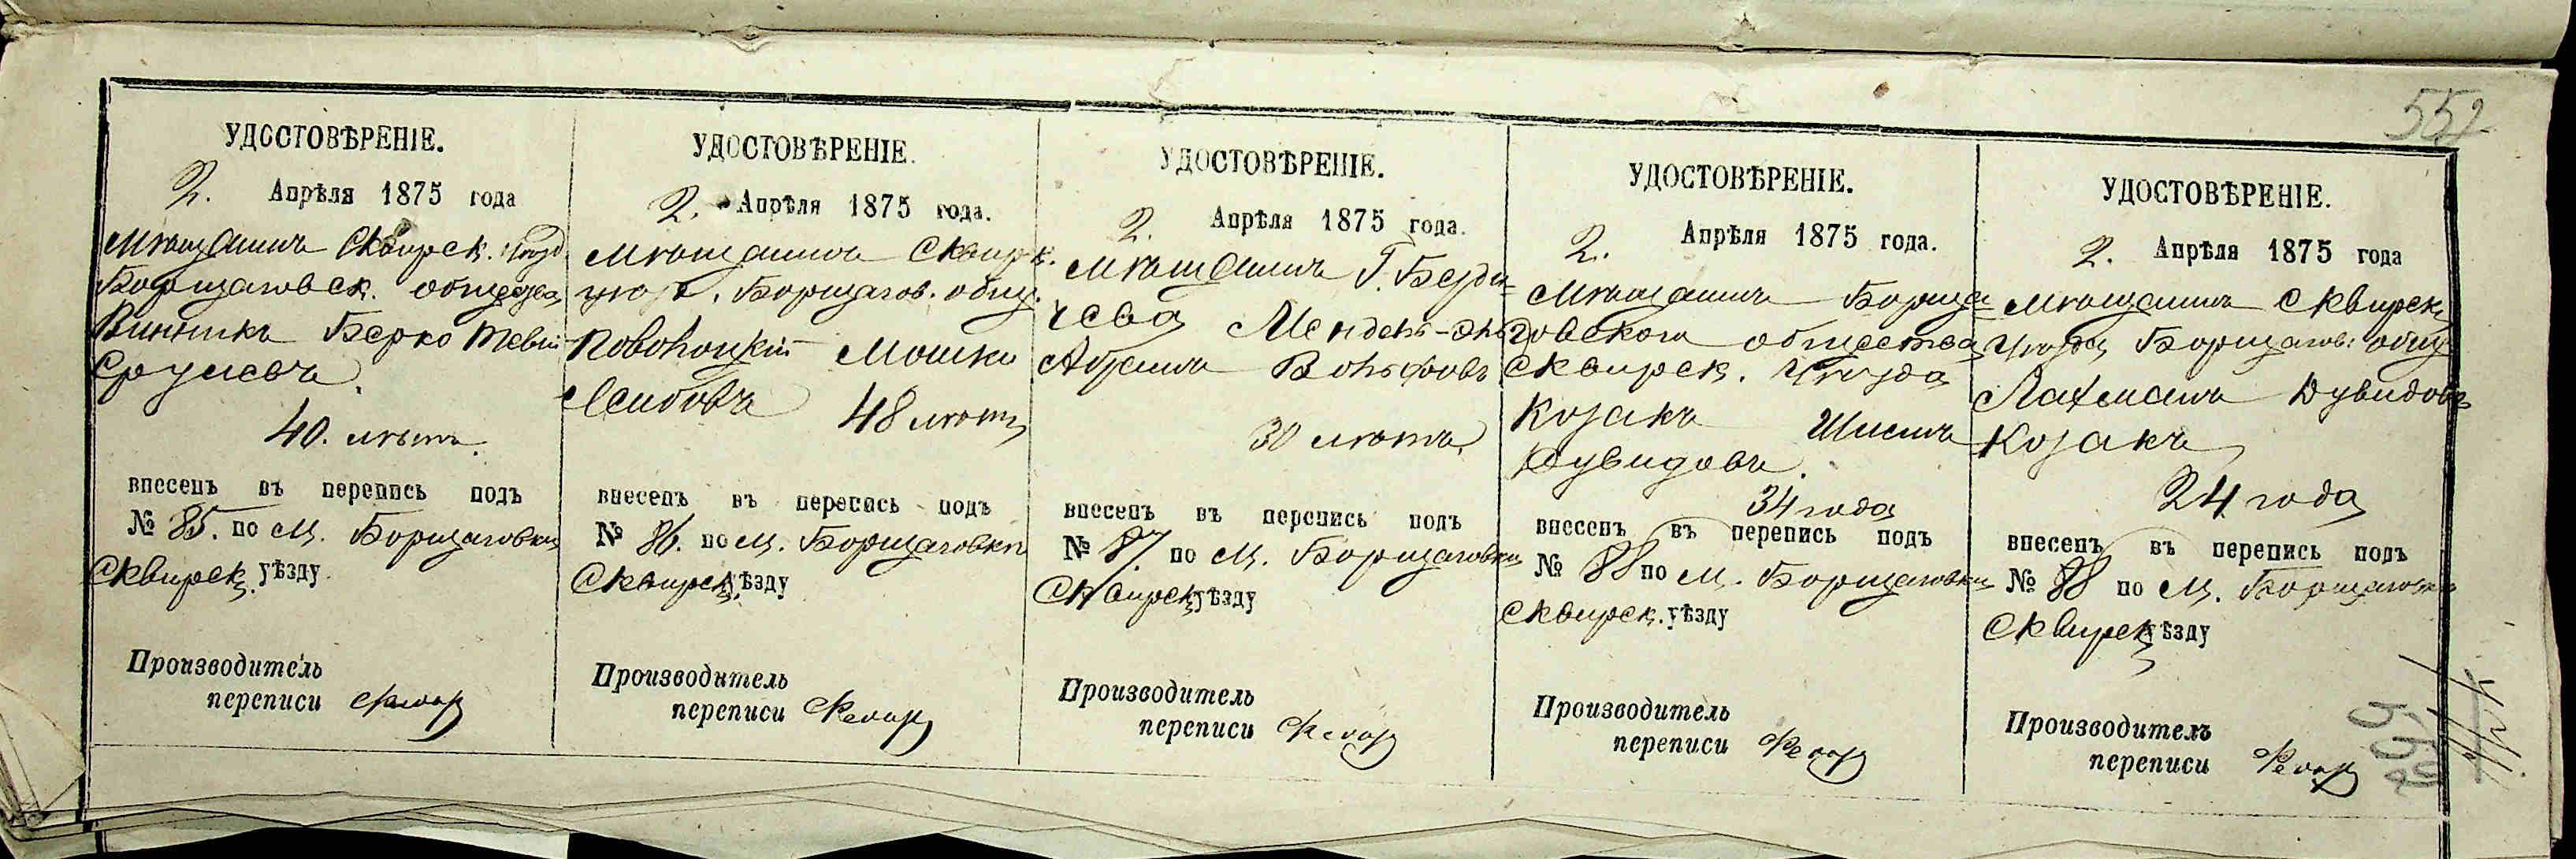 552
УДОСТОВѢРЕНІЕ.
2. Апрѣля 1875 года
Мѣщанинъ Сквирск. уѣзд.
Борщаговск. общества
Винникъ Берко Тевій
Срулевъ.
40. лѣтъ.
внесенъ въ перепись подъ
№ 85. по м. Борщаговки
Сквирск. уѣзду.
Производитель
переписи
УДОСТОВѢРЕНІЕ.
2. Апрѣля 1875 года.
Мѣщанинъ Сквирск.
уѣзд. Борщагов. общ.
Новоноцкій Мошко
Лейбовъ 48 лѣтъ
внесенъ въ перепись подъ
№ 86. по м. Борщаговки
Сквирск. уѣзду
Производитель
переписи
УДОСТОВѢРЕНІЕ.
2. Апрѣля 1875 года.
Мѣщанинъ Г. Берди=
чева Мендель-
Абрамъ Вольфовъ
30 лѣтъ.
внесенъ въ перепись подъ
№ 87. по м. Борщаговки
Сквирск. уѣзду
Производитель
переписи
УДОСТОВѢРЕНІЕ.
2. Апрѣля 1875 года.
Мѣщанинъ Борща=
говского общества
Сквирск. уѣзда
Козакъ Шлема
Дувидовъ.
34 года
внесенъ въ перепись подъ
№ 88 по м. Борщаговки
Сквирск. уѣзду
Производитель
переписи
УДОСТОВѢРЕНІЕ.
2. Апрѣля 1875 года
Мѣщанинъ Сквирск.
уѣзда Борщагов. общ.
Лахманъ Дувидовъ
Козакъ
24 года
внесенъ въ перепись подъ
№ 88 по м. Борщаговки
Сквирск. уѣзду
Производитель
переписи